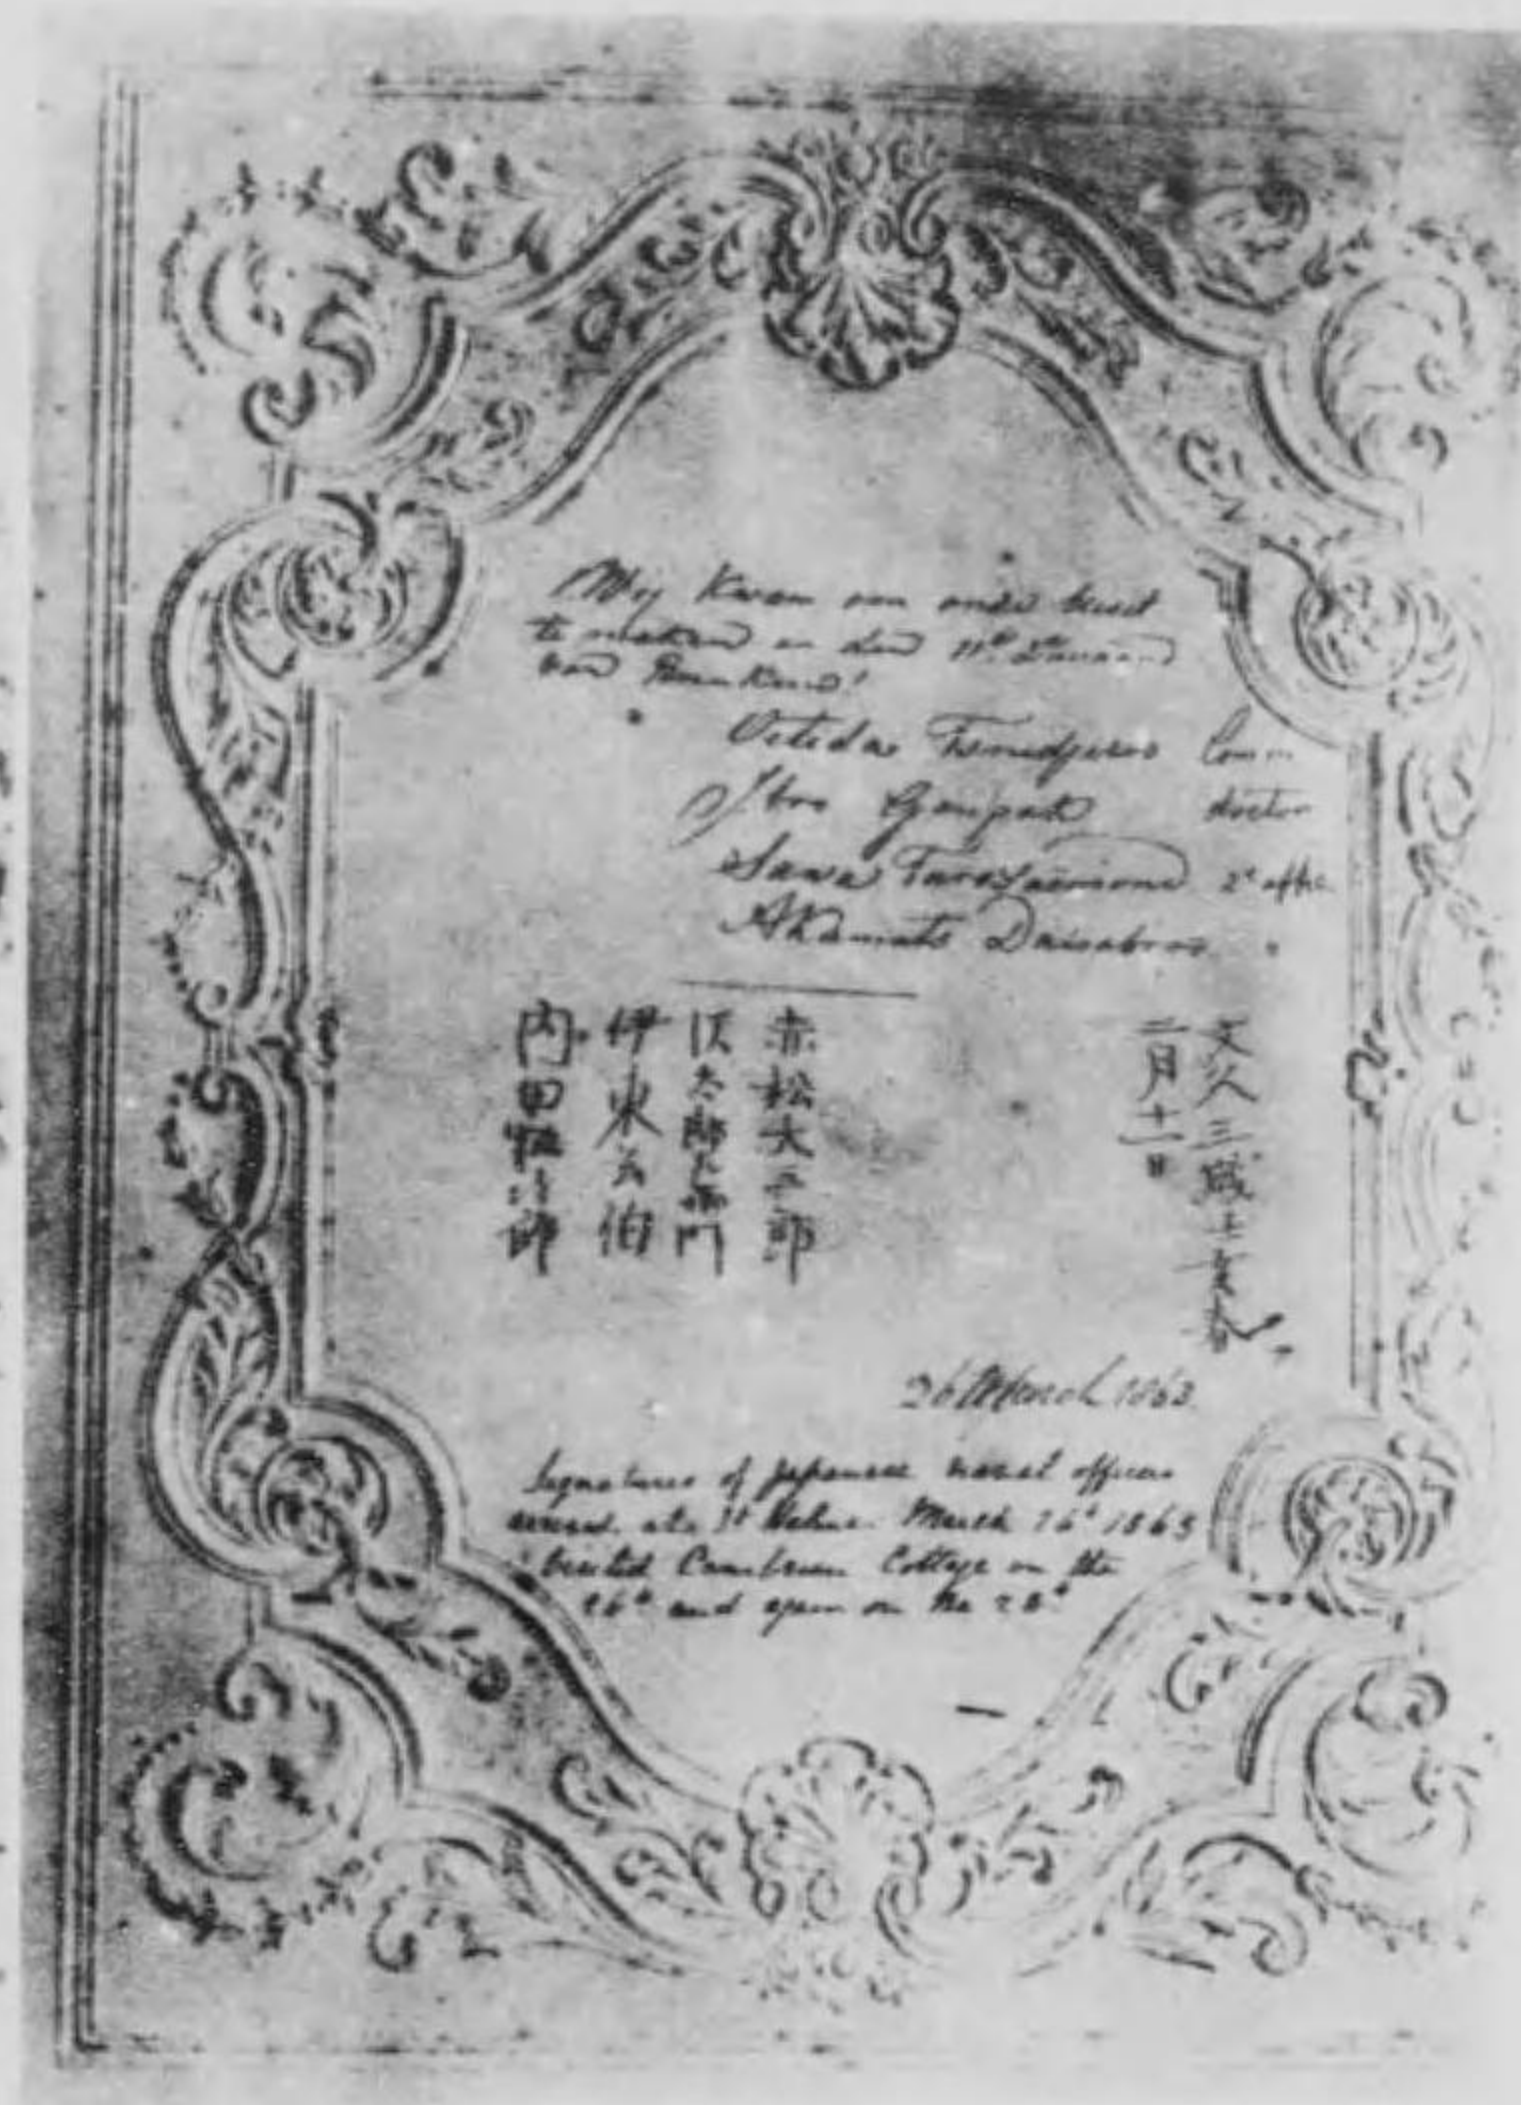 Wij Kwam om onze
te maken en den 11de
van
Oetida Tsunedjiro Com
Itoo Genpak doctor
Sawa Tarozaëmond 2e offic
Akamats Daisabroo "
文久三歳
二月十一日
赤松大三郎
沢太郎左衛門
伊東玄伯
内田恒次郎
26 March 1863
Signatures of Japanese naval officers
arrived at St Helena March 26th 1863
Visited Cambrian Cottage on the
26th and again on the 28th